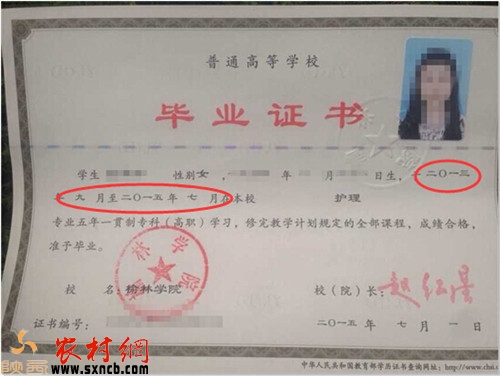 普通高等学校
毕业证书
学生 性别女, 年 月 日生, 于二〇一三
年 九 月至二〇一五年 七 月在本校 护理
专业五年一贯制专科(高职)学习,修完教学计划规定的全部课程,成绩合格,
准予毕业。
校 名:榆林学院
校(院)长:
证书编号:
二〇一五年 七 月 一 日
中华人民共和国教育部学历证书查询网址:http://www.chsi.
榆林学院
陕西
农村網
www.sxncb.com